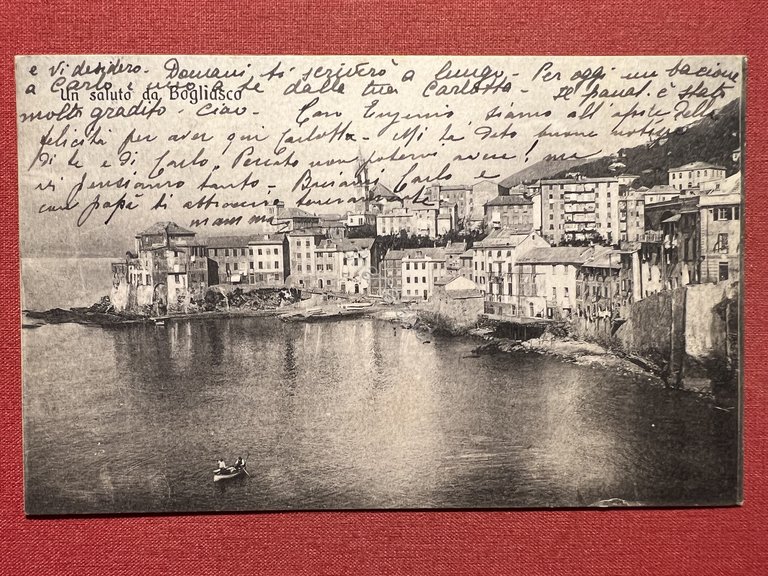 e vi desidero. Domani ti scriverò a lungo. Per oggi un bacione
a Carlo e uno a te dalla tua Carlotta. Il panal. è stato
Un saluto da Bogliasco
molto gradito. Ciao. Caro Eugenio, siamo all'apice della
felicità per aver qui Carlotta. Mi ha dato buone notizie
di te e di Carlo. Peccato non potervi avere! ma
vi pensiamo tanto. Baciami Carlo e
con papà ti abbraccio teneramente
mamma